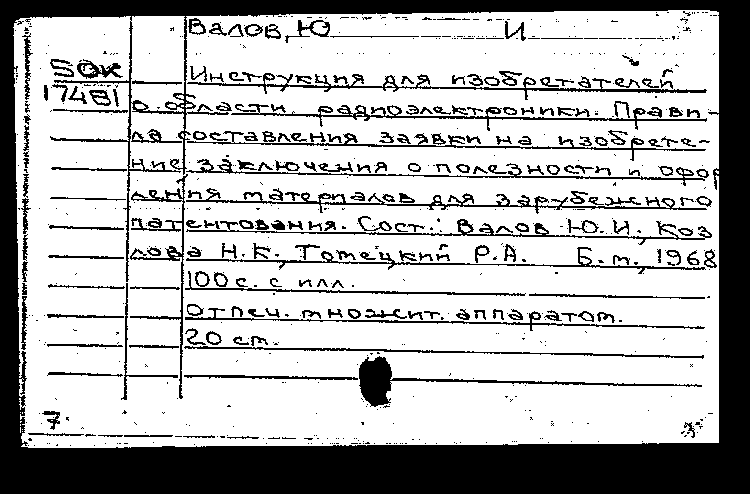 Валов, Ю И.
SOK Инструкция для изобретателей
17481 о области радиоэлектроники. Прави-
ла составления заявки на изобрете-
ние, заключения о полезности и офор
ления материалов для зарубежного
патентования. Сост.: Валов Ю.И., Коз
лова Н.К., Готецкий Р.А. Б.м., 1968
100 с. с илл.
Отпеч. множит. аппаратом.
20 см.
7